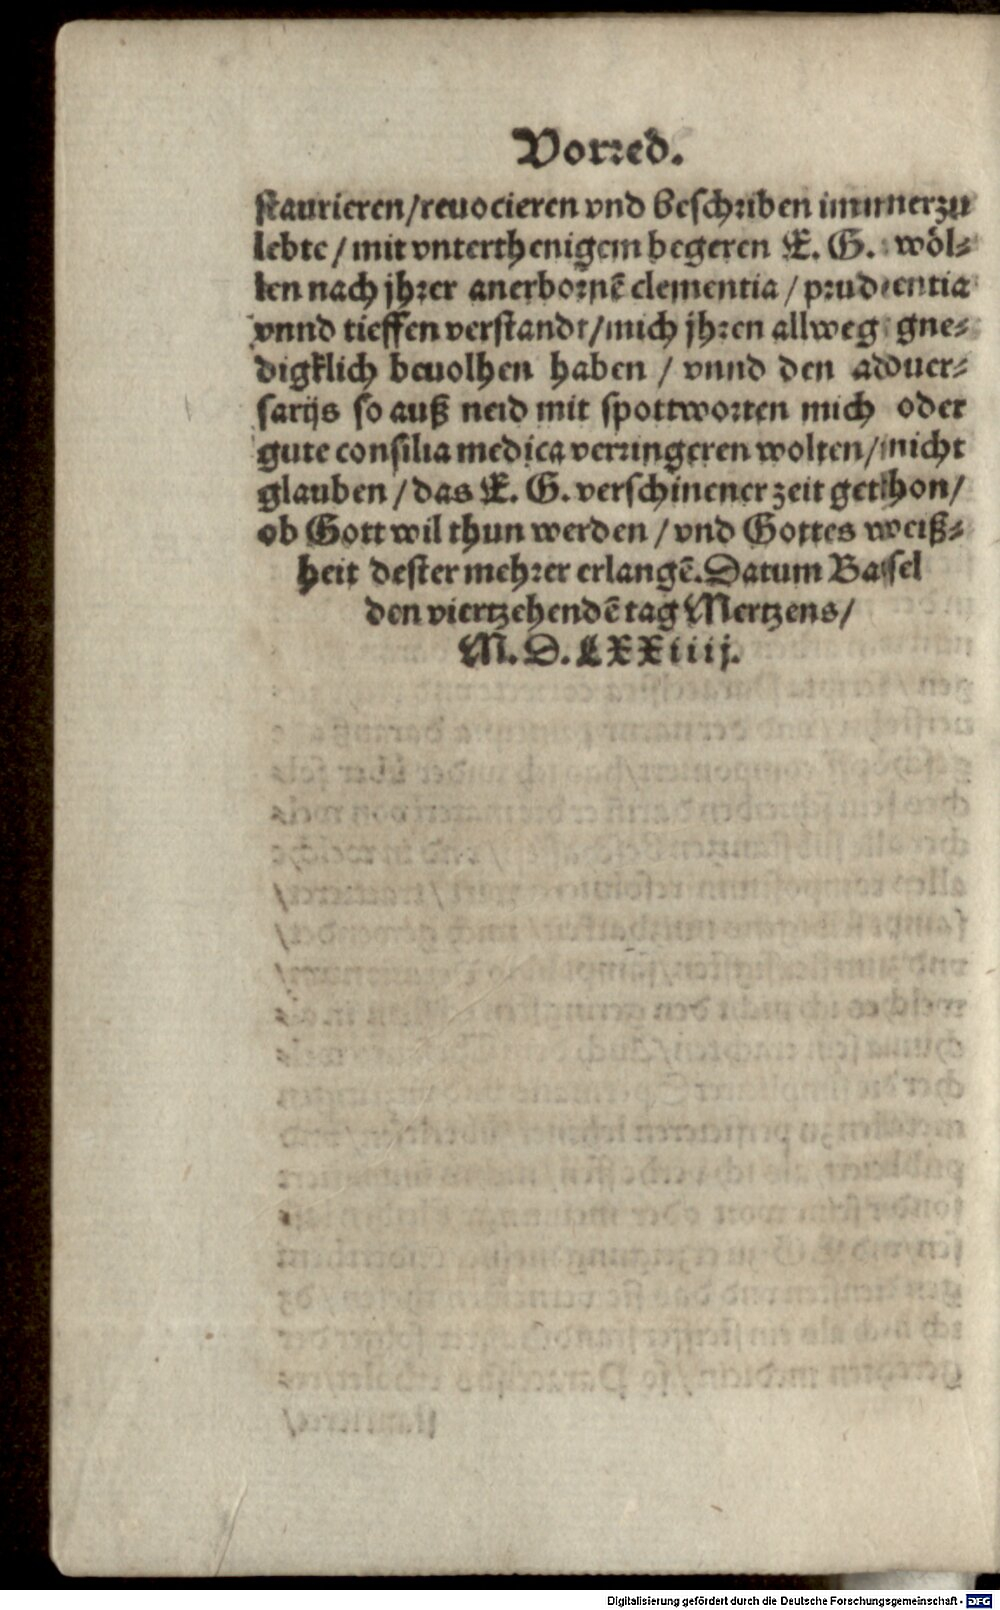 Vorred.
staurieren/reuocieren vnd beschriben immerzu
lebte/ mit vnterthenigem begeren E. G. wöl⸗
len nach jhrer anerbornē clementia/ prudentia
vnnd tieffen verstandt/mich jhren allweg gne⸗
digklich beuolhen haben/ vnnd den aduer⸗
sarijs so auß neid mit spottworten mich oder
gute consilia medica verringeren wolten/nicht
glauben/das E. G. verschinener zeit gethon/
ob Gott wil thun werden/ vnd Gottes weiß⸗
heit dester mehrer erlangē. Datum Basel
den viertzehendē tag Mertzens/
M. D. LXXiiij.
Digitalisierung gefördert durch die Deutsche Forschungsgemeinschaft - DFG